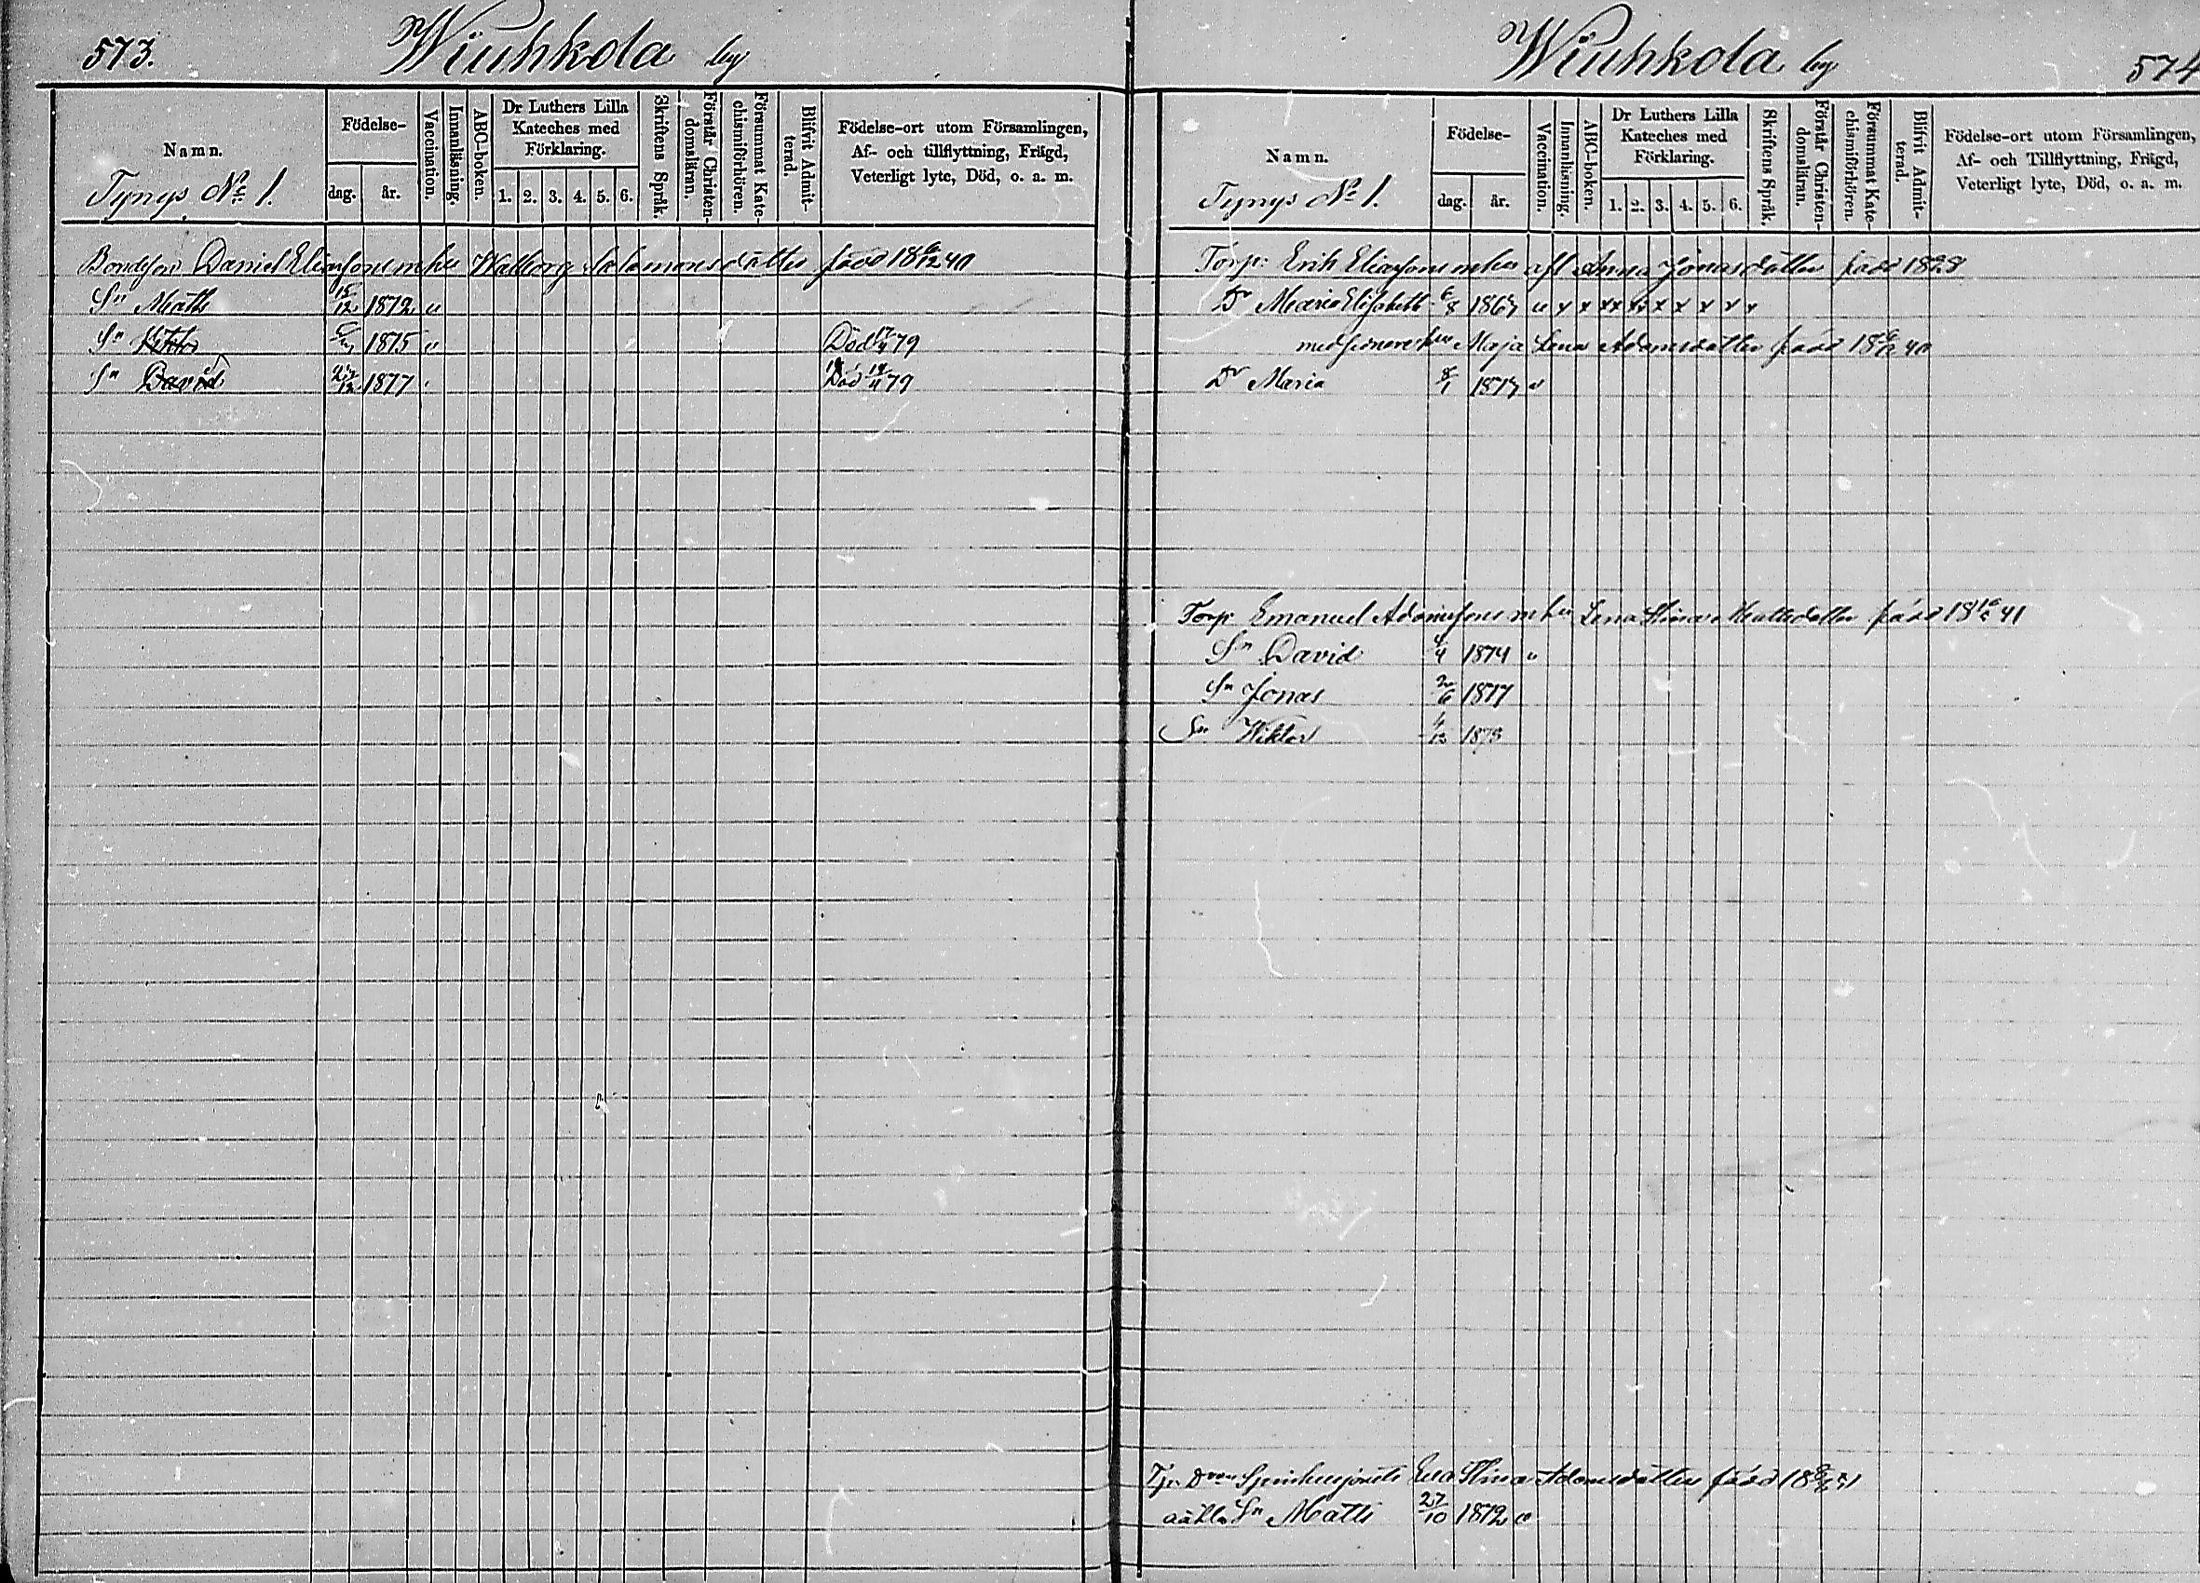 573.
Wiuhkola by
Namn.
Födelse-
dag.
år.
Vaccination.
Innanläsning.
ABC-boken.
Dr Luthers Lilla
Kateches med
Förklaring.
1. 2. 3. 4. 5. 6.
Skriftens Språk.
Förstår Christen-
domsläran.
Försummat Kate-
chismiförhören.
Blifvit Admit-
terad.
Födelse-ort utom Församlingen,
Af- och tillflyttning, Frägd,
Veterligt lyte, Död, o. a. m.
Tynys No 1.
Daniel Eliassons Walborg Salomonsdotter född
Sn Matts 15/12 1872
Sn 1875 Död 79
Sn David 1877 Död 79
Wiuhkola by
574
Namn.
Födelse-
dag.
år.
Vaccination.
Innanläsning.
ABC-boken.
Dr Luthers Lilla
Kateches med
Förklaring.
1. 2. 3. 4. 5. 6.
Skriftens Språk.
Förstår Christen-
domsläran.
Försummat Kate-
chismiförhören.
Blifvit Admit-
terad.
Födelse-ort utom Församlingen,
Af- och Tillflyttning, Frägd,
Veterligt lyte, Död, o. a. m.
Tynys No 1.
Torp: Erik Eliassons afl Anna Jonasdotter född 1828
Dr Maria Elisabeth 1867 x x x x x x x x x x
med senare hu Maja Lena Adamsdotter född
Dr Maria 8/1 1877
Torp Emanuel Adamssons m hu Lena Stina Mattsdotter född 41
Sn David 1874
Sn Jonas 2/6 1877
Sn Wiktor 1878
Eva Stina Adamsdotter född
oäkta Sn Matts 27/10 1872